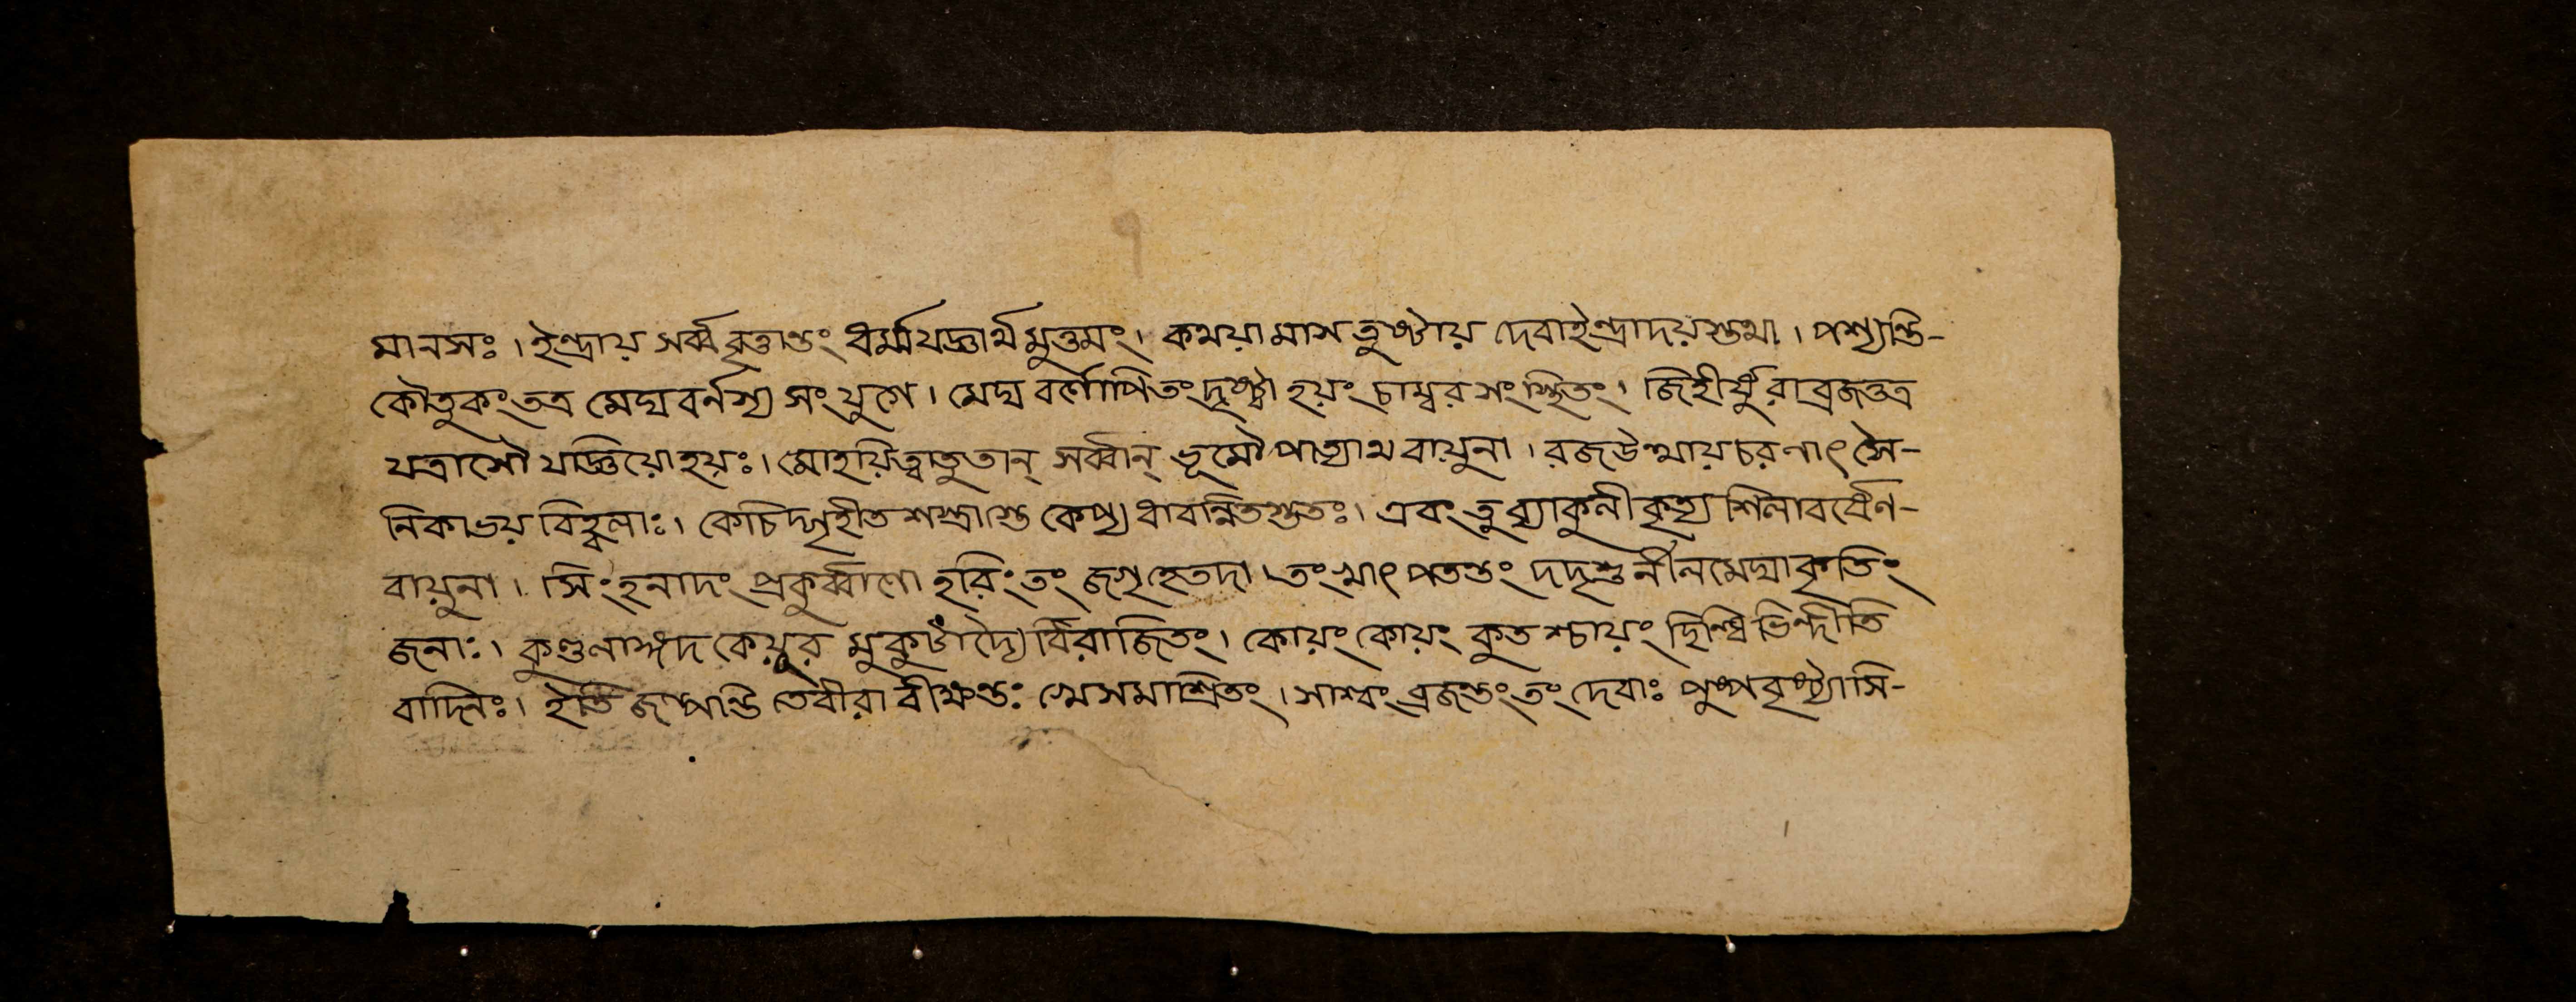 মানসঃ। ইন্দ্রায় সর্ব্ববৃত্তান্তং ধর্ম্মযজ্ঞার্থমুত্তমং। কথয়ামাস তুষ্টায় দেবাইন্দ্রাদয়স্তথা। পশ্যন্তি-
কৌতুকং তত্র মেঘবর্নস্য সংযুগে। মেঘবর্ণোপিতং দৃষ্ট্বা হয়ং চাম্বরসংস্থিতং। জিহীর্ষুরাব্রজত্তত্র
যত্রাসৌ যাজ্ঞিয়োহয়ঃ। মোহয়িত্বাতুতান্ সর্ব্বান্ ভূমৌপাত্যাথ বায়ুনা। রজউত্থায়চরণাৎ সৈ-
নিকাভয়বিহ্বলাঃ। কেচিদ্গৃহীতশস্ত্রাস্তে কেপ্যধাবন্নিতস্ততঃ। এবং তুব্যাকুলীকৃত্য শিলাবর্ষেণ-
বায়ুনা। সিংহনাদং প্রকুর্ব্বাণো হরিং তং জগৃহেতদা। তং খাৎ পতন্তং দদৃশুর্নীলমেঘাকৃতিং
জনাঃ। কুণ্ডলাঙ্গদ কেয়ূর মুকুটাদ্যৈর্বিরাজিতং। কোয়ং কোয়ং কুতশ্চায়ং ছিন্ধিভিন্দীতি
বাদিনঃ। ইতি জল্পন্তি তেবীরা বীক্ষন্তঃ খেসমাশ্রিতং। সাশ্বং ব্রজন্তং তং দেবাঃ পুষ্পবৃষ্ট্যাসি-